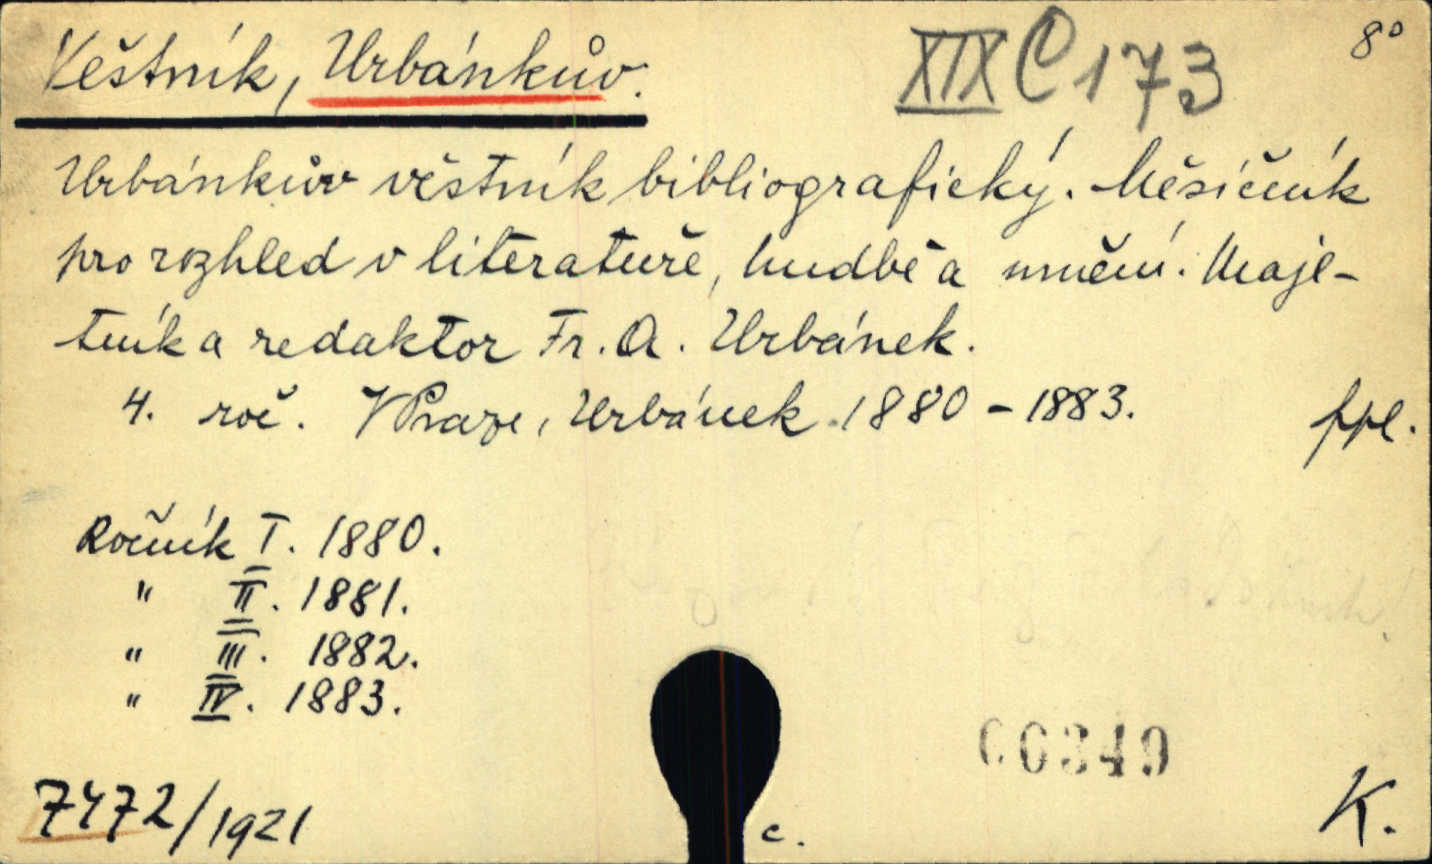 Věstník, Urbánkův. XIX C 173 8°
Urbánkův věstník bibliografický. Měsíčník
pro rozhled v literatuře, hudbě a umění. Maje-
tník a redaktor Fr. A. Urbánek.
4. roč. V Praze, Urbánek. 1880 – 1883. ppl.
Ročník I. 1880.
" II. 1881.
" III. 1882.
" IV. 1883.
00349
7472/1921 c. K.